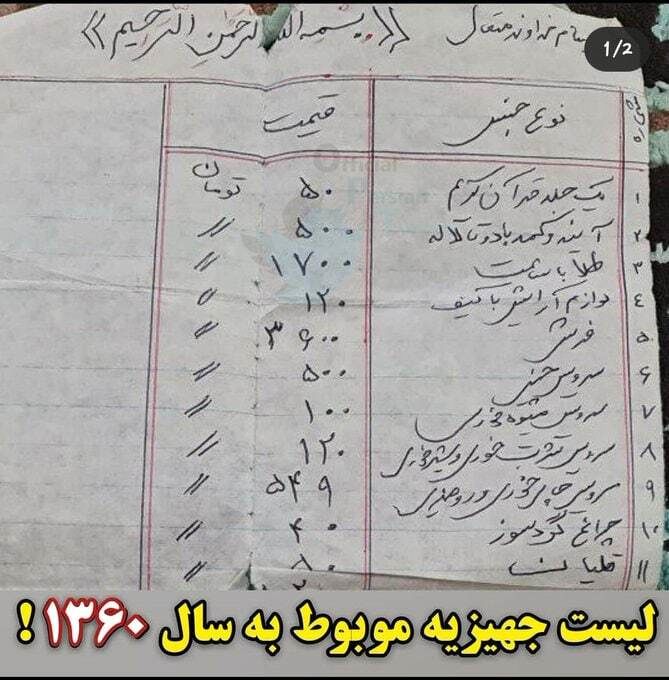 بنام خداوند متعال ((بسم الله الرحمن الرحیم))
1/2
شماره نوع جنس قیمت
۱ یک جلد قرآن کریم ۵۰ تومان
۲ آینه و شمعدان با دو تا لاله ۵۰۰ //
۳ طلا با ساعت ۱۷۰۰ //
۴ لوازم آرایش با کیف ۱۲۰ //
۵ فرش ۳۶۰۰ //
۶ سرویس چینی ۵۰۰ //
۷ سرویس میوه خوری ۱۰۰ //
۸ سرویس شربت خوری و شیرخوری ۱۲۰ //
۹ سرویس چای خوری و ۵۴۹ //
۱۰ چراغ گردسوز ۴۰ //
۱۱ قلیان //
Official
Persian
لیست جهیزیه موبوط به سال ۱۳۶۰ !